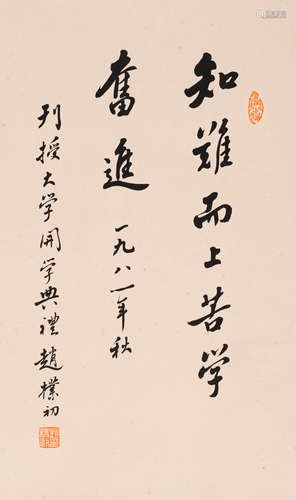 知難而上苦学
奮進 一九八一年秋
刊授大学開学典禮 趙樸初